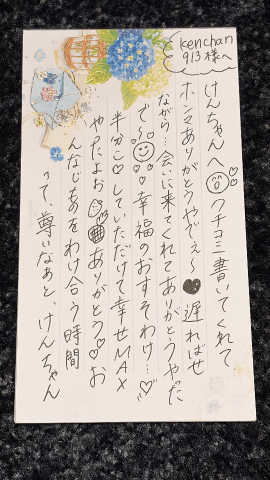 kenchan
913様へ
けんちゃんへ クチコミ書いてくれて
ホンマありがとうやでぇ〜♥遅ればせ
ながら…会いに来てくれてありがとうやった
で〜♡幸福のおすそわけ…♡
半分こ♡していただけて幸せMAX
やったよお ありがとう♡お
んなじものをわけ合う時間
って、尊いなぁと、けんちゃん